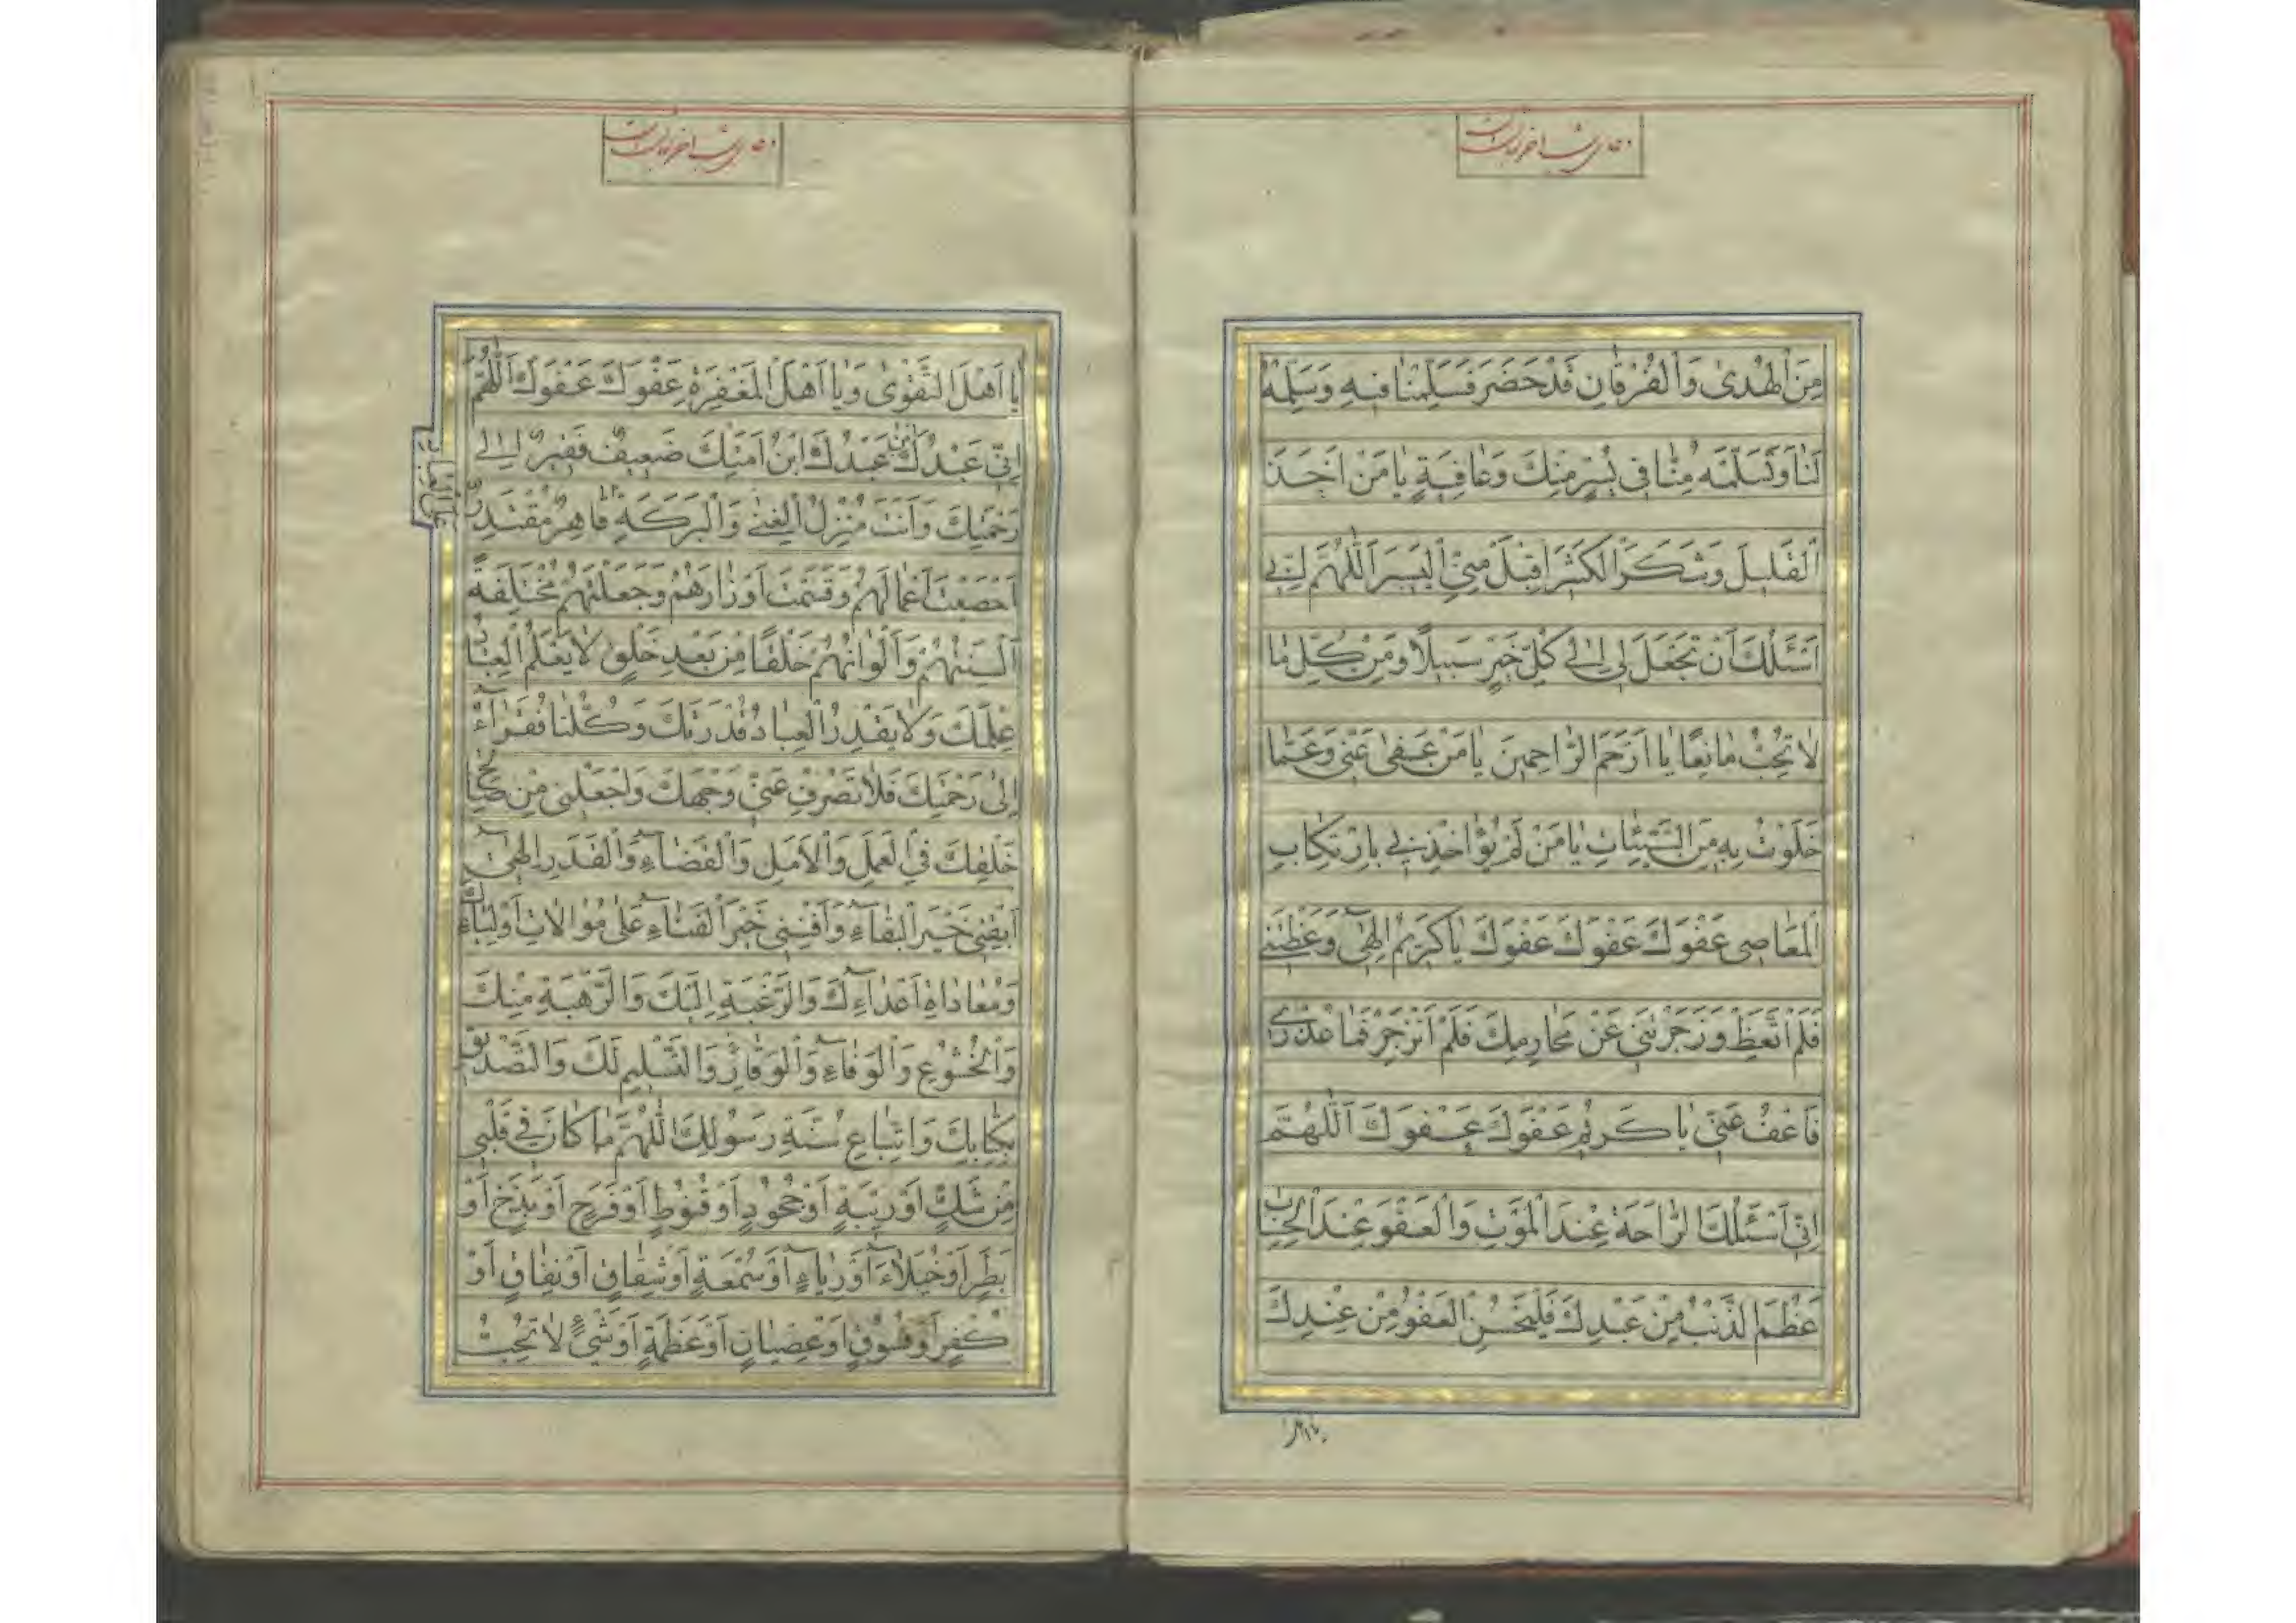 دعای شب آخر شعبان
مِنَ الْهُدىٰ وَالْفُرْقانِ قَدْ حَضَرَ فَسَلِّمْنا فيهِ وَسَلِّمْهُ
لَنا وَتَسَلَّمْهُ مِنّا في يُسْرٍ مِنْكَ وَعافِيَةٍ يا مَنْ اَخَذَ
الْقَليلَ وَشَكَرَ الْكَثيرَ اِقْبَلْ مِنِّي الْيَسيرَ اَللّٰهُمَّ اِنّي
اَسْئَلُكَ اَنْ تَجْعَلَ لي اِلىٰ كُلِّ خَيْرٍ سَبيلًا وَمِنْ كُلِّ ما
لا تُحِبُّ مانِعًا يا اَرْحَمَ الرّاحِمينَ يا مَنْ عَفىٰ عَنّي وَعَمّا
خَلَوْتُ بِهِ مِنَ السَّيِّئاتِ يا مَنْ لَمْ يُؤاخِذْني بِارْتِكابِ
الْمَعاصي عَفْوَكَ عَفْوَكَ عَفْوَكَ يا كَريمُ اِلٰهي وَعَظْتَني
فَلَمْ اَتَّعِظْ وَزَجَرْتَني عَنْ مَحارِمِكَ فَلَمْ اَنْزَجِرْ فَما عُذْري
فَاعْفُ عَنّي يا كَريمُ عَفْوَكَ عَفْوَكَ اَللّٰهُمَّ
اِنّي اَسْئَلُكَ الرّاحَةَ عِنْدَ الْمَوْتِ وَالْعَفْوَ عِنْدَ الْحِسابِ
عَظُمَ الذَّنْبُ مِنْ عَبْدِكَ فَلْيَحْسُنِ الْعَفْوُ مِنْ عِنْدِكَ
دعای شب آخر شعبان
يا اَهْلَ التَّقْوىٰ وَيا اَهْلَ الْمَغْفِرَةِ عَفْوَكَ عَفْوَكَ اَللّٰهُمَّ
اِنّي عَبْدُكَ ابْنُ عَبْدِكَ ابْنُ اَمَتِكَ ضَعيفٌ فَقيرٌ اِلىٰ
رَحْمَتِكَ وَاَنْتَ مُنْزِلُ الْغِنىٰ وَالْبَرَكَةِ قاهِرٌ مُقْتَدِرٌ
اَحْصَيْتَ اَعْمالَهُمْ وَقَسَمْتَ اَوْزارَهُمْ وَجَعَلْتَهُمْ مُخْتَلِفَةً
اَلْسِنَتُهُمْ وَاَلْوانُهُمْ خَلْقًا مِنْ بَعْدِ خَلْقٍ لا يَعْلَمُ الْعِبادُ
عِلْمَكَ وَلا يَقْدِرُ الْعِبادُ قَدْرَتَكَ وَكُلُّنا فُقَرآءُ
اِلىٰ رَحْمَتِكَ فَلا تَصْرِفْ عَنّي وَجْهَكَ وَاجْعَلْني مِنْ صالِحي
خَلْقِكَ فِي الْعَمَلِ وَالْاَمَلِ وَالْقَضآءِ وَالْقَدَرِ اِلٰهي
اَبْقِني خَيْرَ الْبَقآءِ وَاَفْنِني خَيْرَ الْفَنآءِ عَلىٰ مُوالاتِ اَوْلِيآئِكَ
وَمُعاداةِ اَعْدآءِكَ وَالرَّغْبَةِ اِلَيْكَ وَالرَّهْبَةِ مِنْكَ
وَالْخُشُوعِ وَالْوَفآءِ وَالْوَقارِ وَالتَّسْليمِ لَكَ وَالتَّصْديقِ
بِكِتابِكَ وَاتِّباعِ سُنَّةِ رَسُولِكَ اَللّٰهُمَّ ما كانَ في قَلْبي
مِنْ شَكٍّ اَوْ ريبَةٍ اَوْ جُحُودٍ اَوْ قُنُوطٍ اَوْ فَرَحٍ اَوْ بَذَخٍ اَوْ
بَطَرٍ اَوْ خُيَلآءَ اَوْ رِيآءٍ اَوْ سُمْعَةٍ اَوْ شِقاقٍ اَوْ نِفاقٍ اَوْ
كُفْرٍ اَوْ فُسُوقٍ اَوْ عِصْيانٍ اَوْ عَظَمَةٍ اَوْ شَيْءٍ لا تُحِبُّ